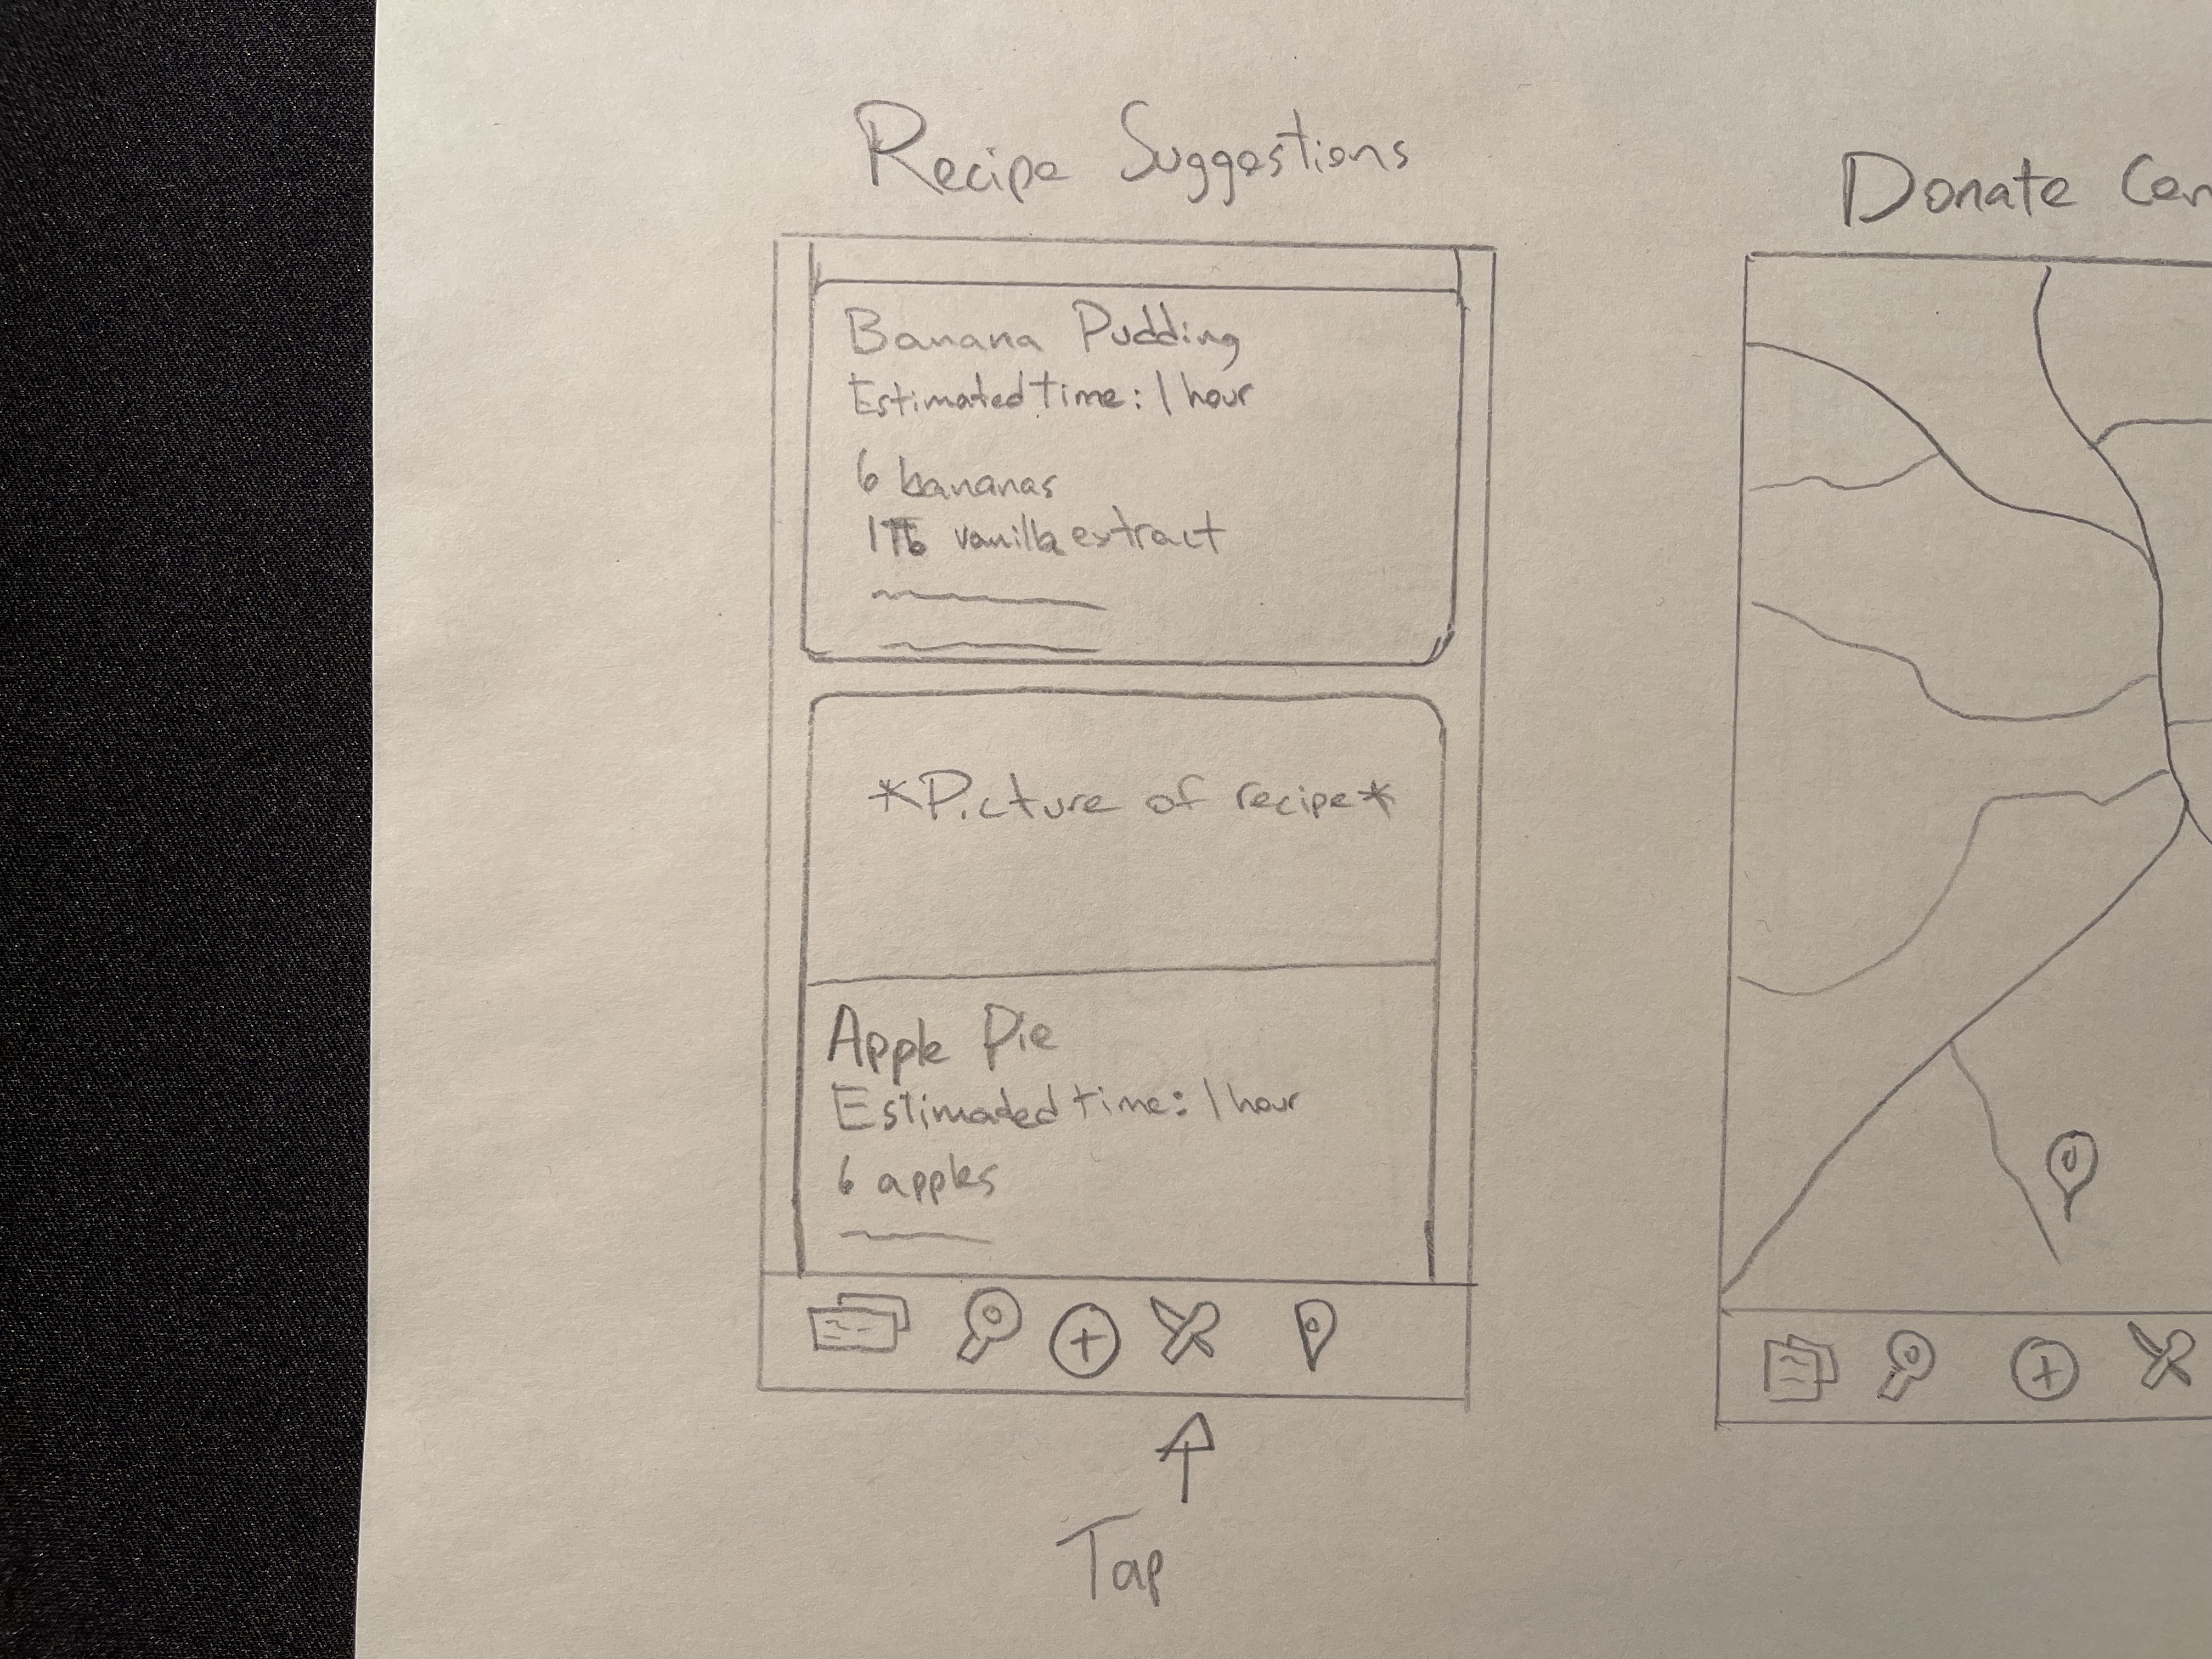 Recipe Suggestions
Banana Pudding
Estimated time: 1 hour
6 bananas
1 Tb vanilla extract
*Picture of recipe*
Apple Pie
Estimaded time: 1 hour
6 apples
Tap
Donate Cen